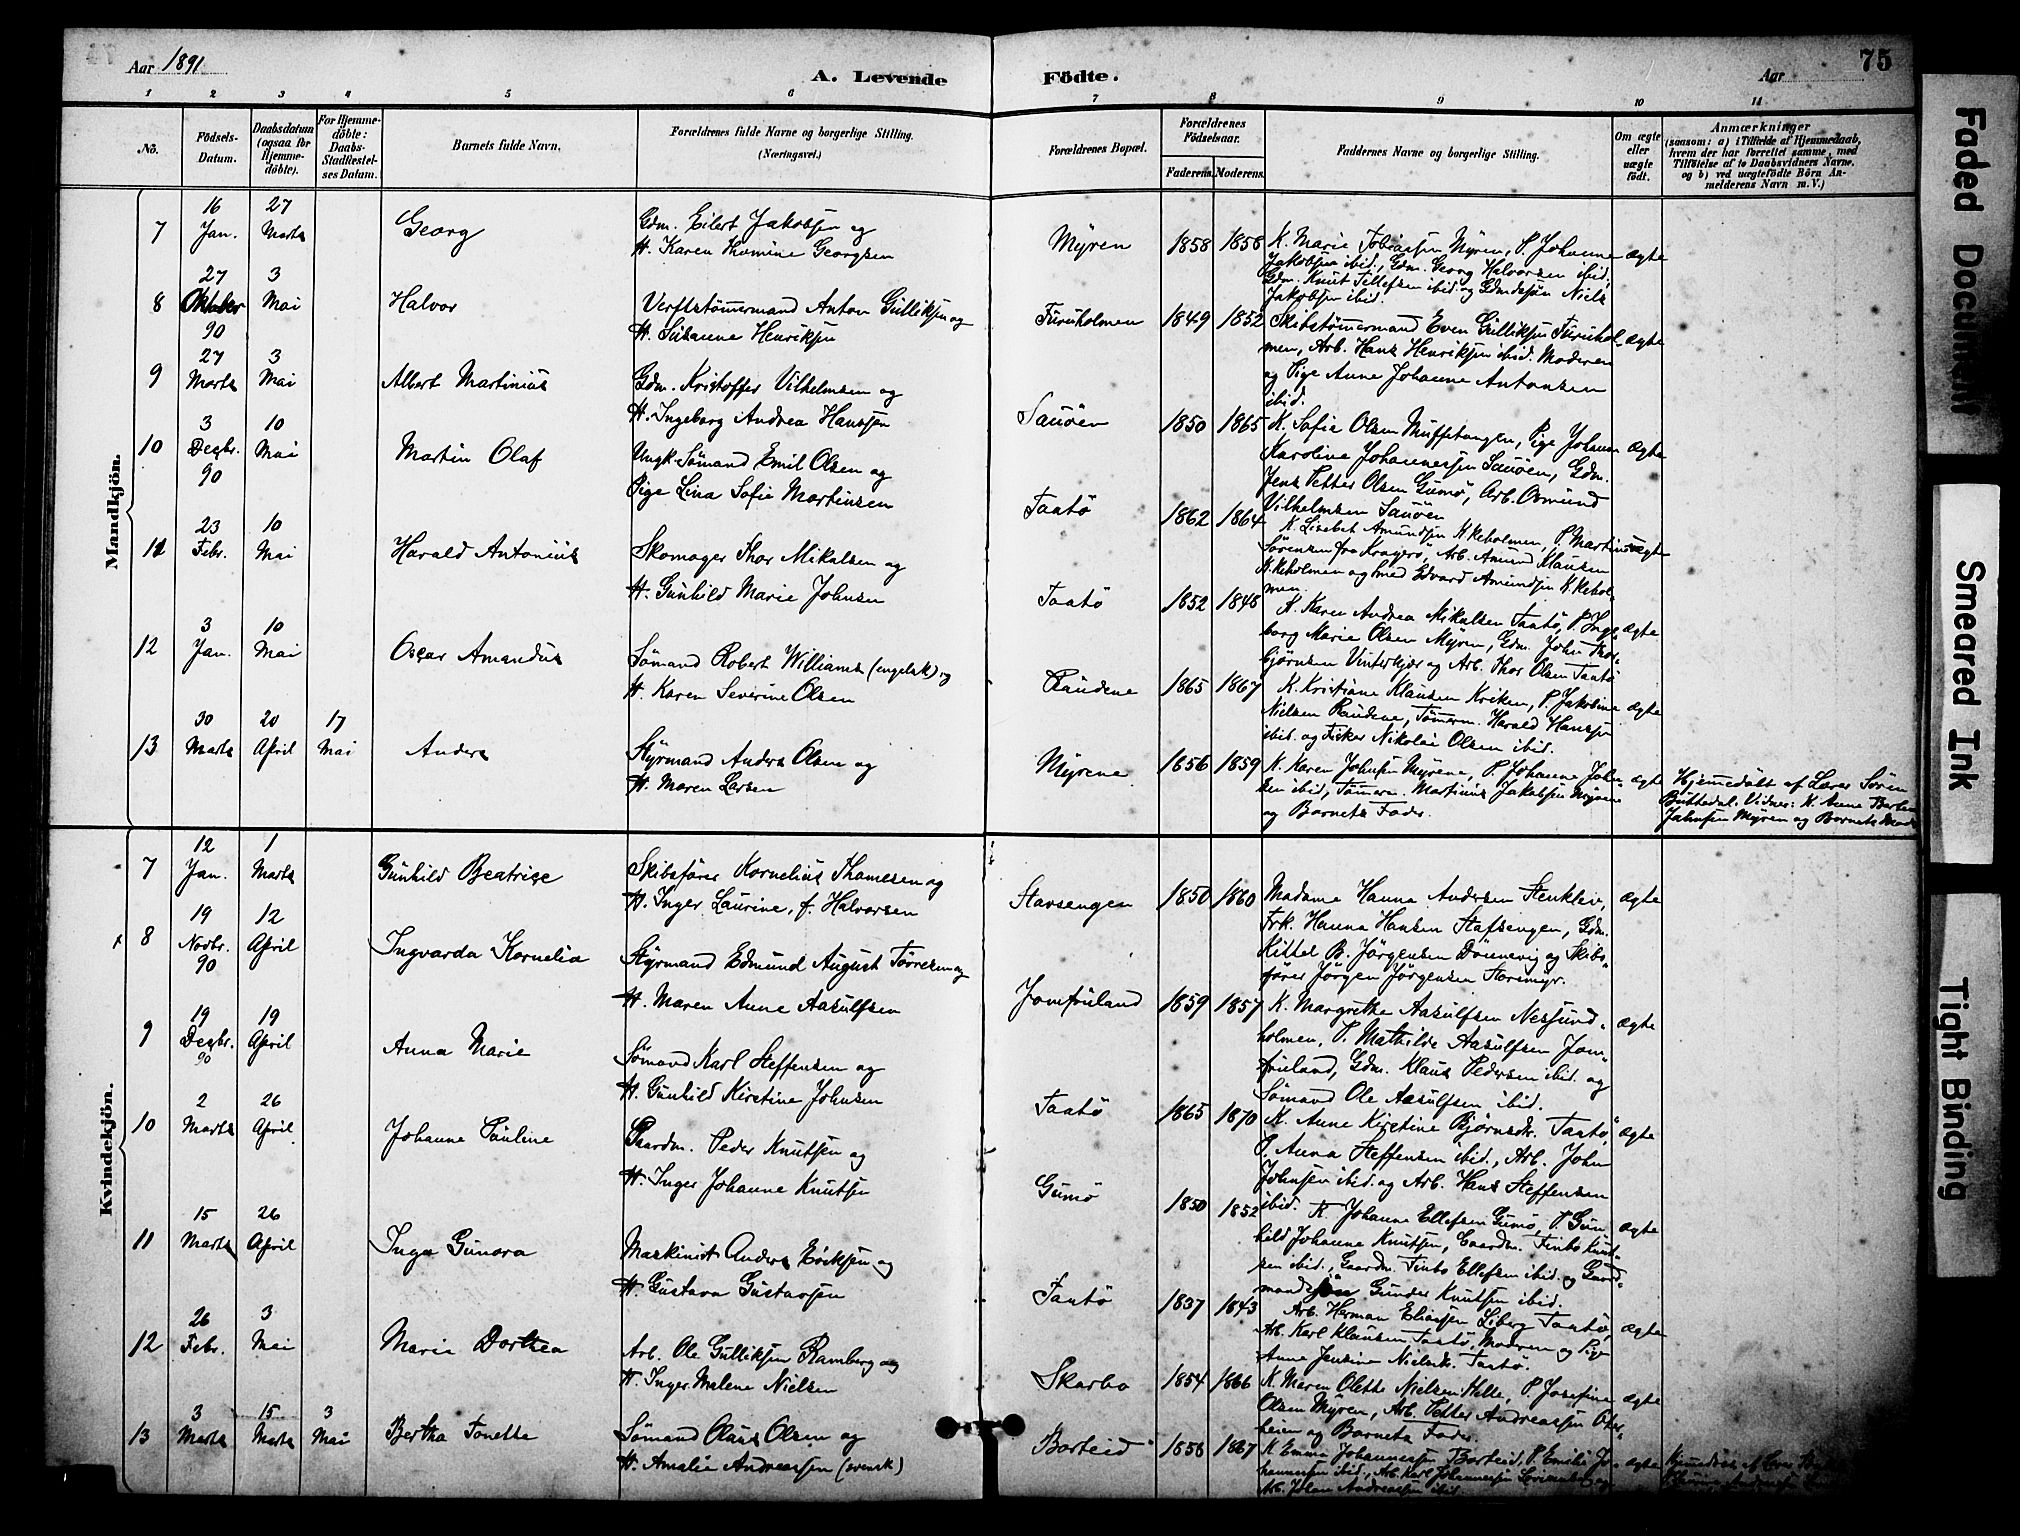 Aar 1891
A. Levende Födte.
Aar
75
1 2 3 4 5 6 7 8 9 10 11
No.
Födsels-Datum.
Daabsdatum (ogsaa for Hjemme-döbte).
For Hjemme-döbte: Daabs-Stadfæstel-ses Datum.
Barnets fulde Navn.
Forældrenes fulde Navne og borgerlige Stilling.
(Næringsvei.)
Forældrenes Bopæl.
Forældrenes Födselsaar.
Faderens. Moderens.
Faddernes Navne og borgerlige Stilling.
Om ægte eller uægte födt.
Anmærkninger
(saasom: a) i Tilfælde af Hjemmedaab, hvem der har forrettet samme, med Tilföielse af to Daabsvidners Navne, og b) ved uægtefödte Börn An-melderens Navn m.V.)
Mandkjön.
7
16 Jan.
27 Marts
Georg
Gdm. Eilert Jakobsen og
H. Karen Thomine Georgsen
Myren
1858 1858
K. Marie Tobiassen Myren, P. Johanne
Jakobsen ibid., Gdm. Georg Halvorsen ibid,
Gdm. Knut Tellefsen ibid og Gdmdssøn Niels
Jakobsen ibid.
ægte
8
27 Oktober 90
3 Mai
Halvor
Verftstömermand Anton Gulliksen og
H. Susanne Henriksen
Furuholmen
1849 1852
Skibstömermand Even Gulliksen Furuhol
men, Arb. Hans Henriksen ibid. Moderen
og Pige Anne Johanne Antonsen
ibid.
ægte
9
27 Marts
3 Mai
Albert Martinius
Gdm. Kristoffer Vilhelmsen og
H. Ingeborg Andrea Hanssen
Sauöen
1850 1865
K. Sofie Olsen Muffetangen, Pige Johanne
Karoline Johannessen Sauöen, Gdm.
Jens Petter Olsen Gumö, Arb. Osmund
Vilhelmsen Sauöen
ægte
10
3 Decbr. 90
10 Mai
Martin Olaf
Ungk. Sömand Emil Olsen og
Pige Lina Sofie Martinsen
Taatö
1862 1864
K. Lisebet Amundsen Kirkeholmen, P. Martine
Sörensen fra Kragerö, Arb. Amund Klausen
Kirkeholmen og Smed Edvard Amundsen Kirkehol-
men.
uægte
11
23 Febr.
10 Mai
Harald Antonius
Skomager Thor Mikalsen og
H. Gunhild Marie Johnsen
Taatö
1852 1848
K. Karen Andrea Mikalsen Taatö, P. Inge-
borg Marie Olsen Myren, Gdm. John Thor-
bjørnsen Vinterkjær og Arb. Thor Olsen Taatö
ægte
12
3 Jan.
10 Mai
Oscar Amandus
Sömand Robert Williams (engelsk) og
H. Karen Severine Olsen
Raudene
1865 1867
K. Kristiane Klausen Kriken, P. Jakobine
Nielsen Raudene, Tömerm. Harald Hanssen
ibid. og Fisker Nikolai Olsen ibid.
ægte
13
30 Marts
20 April
17 Mai
Anders
Styrmand Anders Olsen og
H. Maren Larsen
Myrene
1856 1859
K. Karen Johnsen Myrene, P. Johanne John-
sen ibid, Tömerm. Martinius Jakobsen Myrene
og Barnets Fader.
ægte
Hjemmedöbt af Lærer Sören
Buttedal. Vidner: K. Anne
Johnsen Myren og Barnets
Kvindekjön.
7
12 Jan.
1 Marts
Gunhild Beatrice
Skibsfører Kornelius Thomesen og
H. Inger Laurine, f. Halvorsen
Stavsengen
1850 1860
Madame Hanna Andersen Stenkleiv,
Frk. Hanna Hansen Stafsengen, Gdm.
Kittel B. Jörgensen Dönnevig og Skibs-
förer Jörgen Jörgensen Storemyr.
ægte
8
19 Novbr. 90
12 April
Ingvarda Kornelia
Styrmand Edmund August Tørresen og
H. Maren Anne Aasulfsen
Jomfruland
1859 1857
K. Margrethe Aasulfsen Nesund-
holmen, P. Mathilde Aasulfsen Jom-
fruland, Gdm. Klaus Pedersen ibid. og
Sömand Ole Aasulfsen ibid.
ægte
9
19 Decbr. 90
19 April
Anna Marie
Sömand Karl Steffensen og
H. Gunhild Kirstine Johnsen
Taatö
1865 1870
K. Anne Kirstine Bjørnsdr. Taatö,
P. Anna Steffensen ibid., Arb. John
Johnsen ibid. og Arb. Hans Steffensen
ibid.
ægte
10
2 Marts
26 April
Johanne Pauline
Gaardm. Peder Knutsen og
H. Inger Johanne Knutsen
Gumö
1850 1852
K. Johanne Ellefsen Gumö, P. Gun-
hild Johanne Knutsen, Gaardm. Finbo Knut-
sen ibid., Gaardm. Finbo Ellefsen ibid. og Gaard-
mandssøn Gunder Knutsen ibid.
ægte
11
15 Marts
26 April
Inga Gunora
Maskinist Anders Eriksen og
H. Gustava Gustavsen
Taatö
1837 1843
Arb. Herman Eliassen Liberg Taatö,
Arb. Karl Klausen Taatö, Moderen og Pige
Anne Jensine Nielsdr. Taatö.
ægte
12
26 Febr.
3 Mai
Marie Dorthea
Arb. Ole Gulliksen Ramberg og
H. Inger Malene Nielsen
Skarbo
1854 1866
K. Maren Olette Nielsen Helle, P. Josefine
Olsen Myren, Arb. Petter Andreassen
og Barnets Fader.
ægte
13
3 Marts
15 Marts
3 Mai
Bertha Tonette
Sömand Olaus Olsen og
H. Amalie Andreassen (svensk)
Borteid
1858 1867
K. Emma Johannessen Borteid, P. Emilie Jo-
hannessen ibid, Arb. Karl Johannessen og
Arb. Johan Andreassen ibid.
ægte
Hjemmedöbt af Lærer
Faded Document
Smeared Ink
Tight Binding